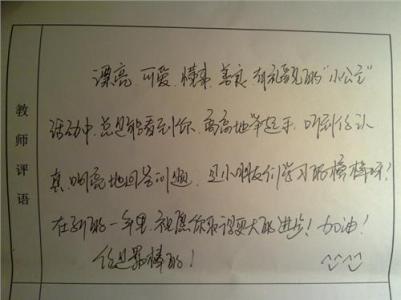 教师评语
漂亮、可爱、懂事、善良、有礼貌的“小公主”
活动中,总是能看到你,高高地举起手,听到你认
真、响亮地回答问题,是小朋友们学习的榜样呀!
在新的一年里,祝愿你取得更大的进步!加油!
你是最棒的!